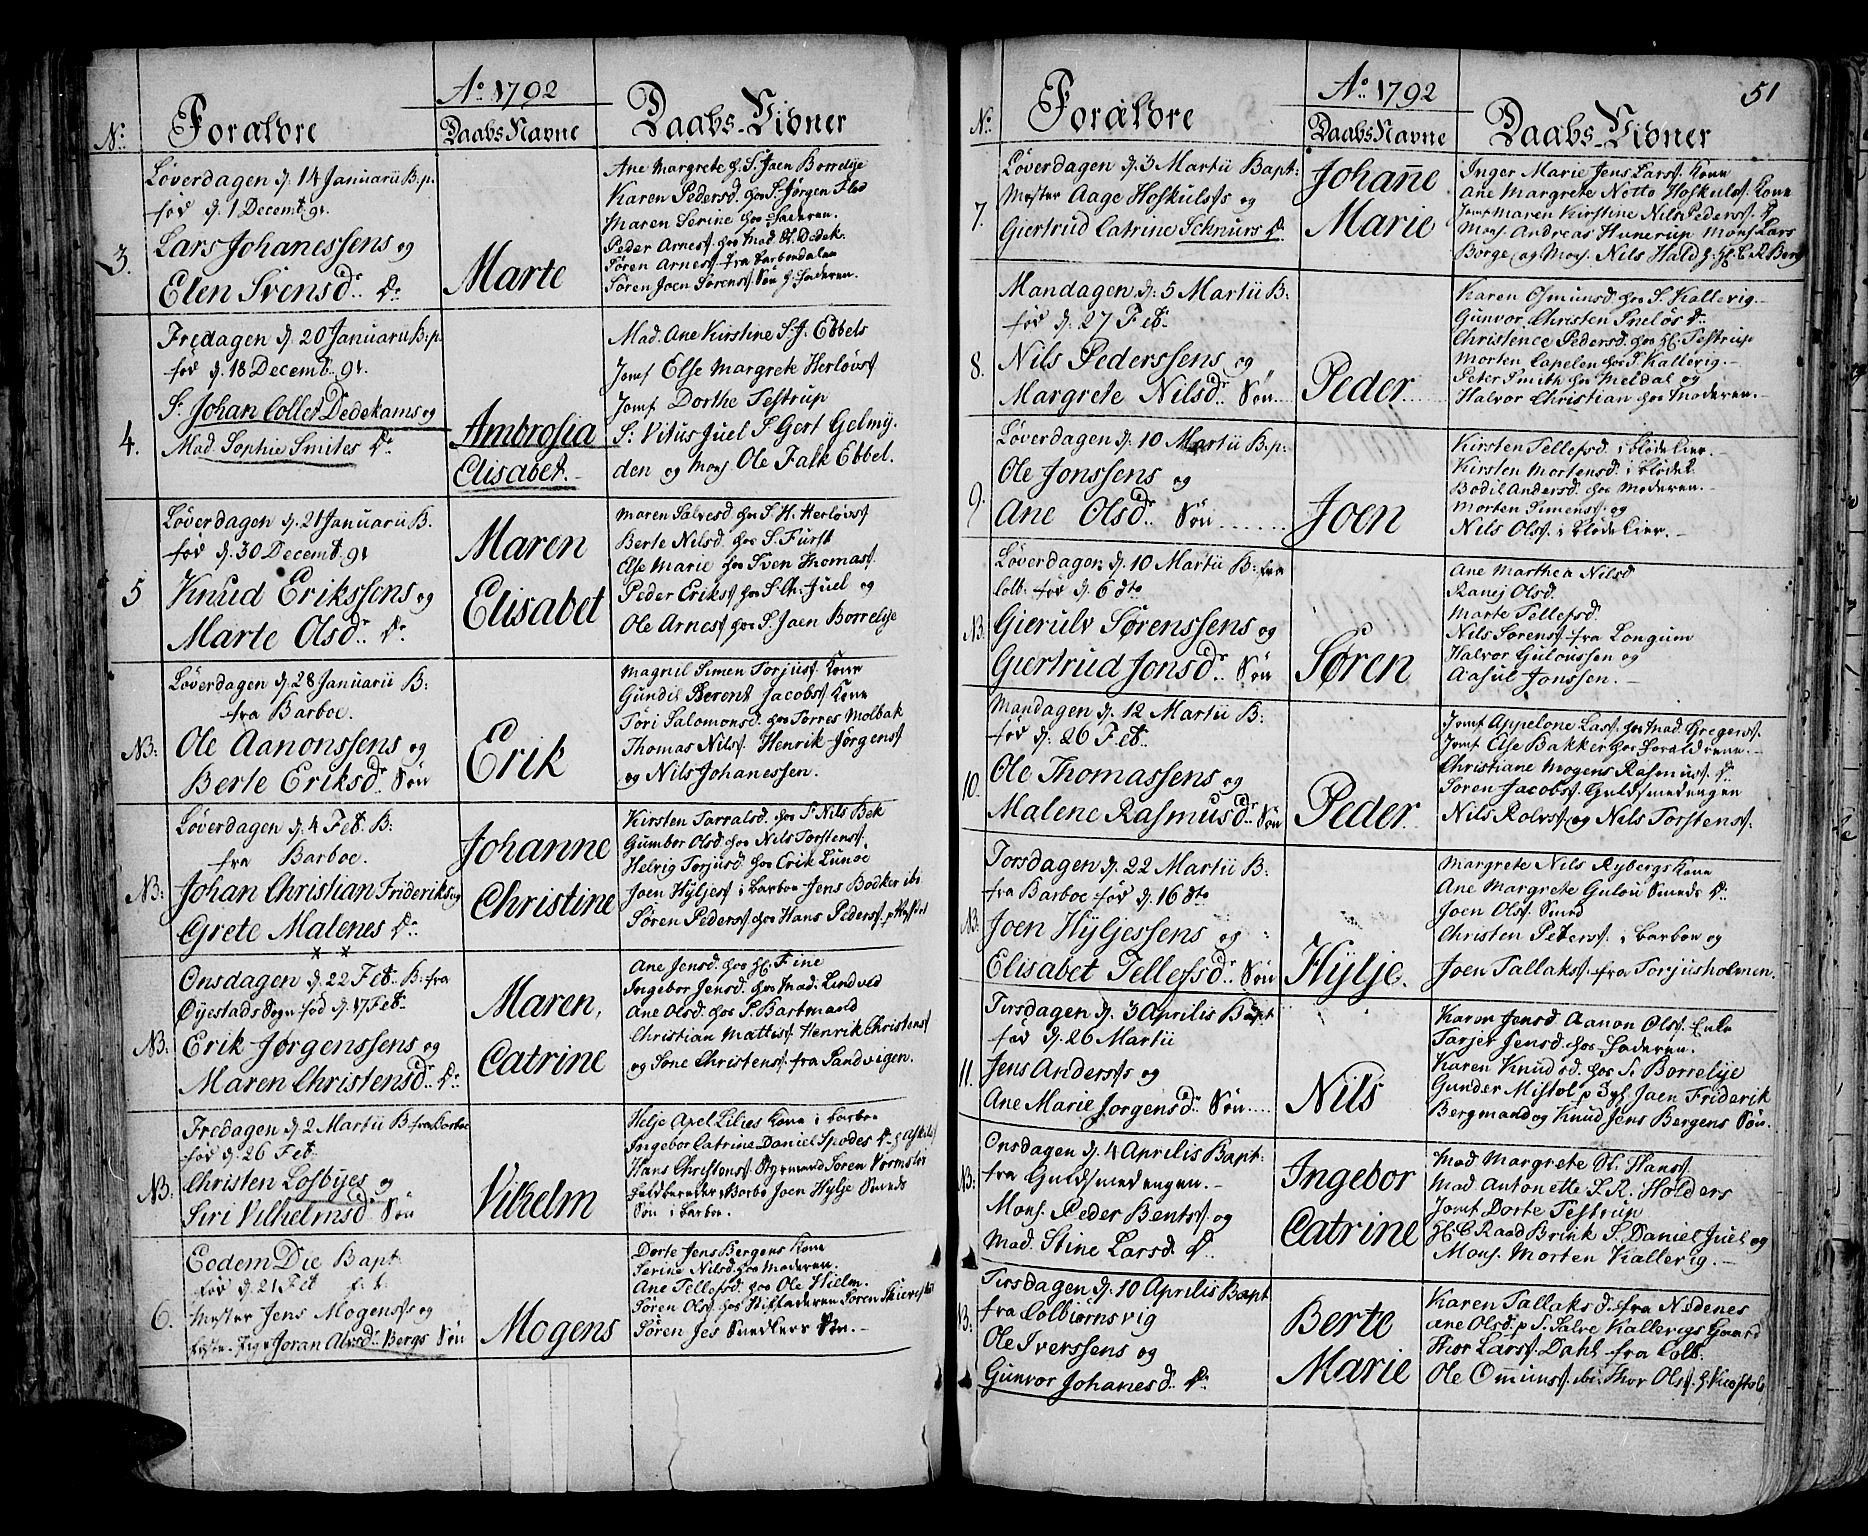 Aº 1792
No. Forældre Daabs Navne Daabs-Vidner
3.
Løverdagen d. 14 Januarii B.p.
fød d. 1 Decemb. 91.
Lars Johanessens og
Elen Svensd. Dr
Marte
Ane Margrete h. S. Jaen Borrelye
Karen Pedersd. hos S. Jørgen Flod
Maren Serine hos Faderen.
Peder Arness. hos Mad. St. Dedek.
Søren Arness. fra Barbudalen
Søren Joen Sørens. Søn h. Faderen.
4.
Fredagen d. 20 Januarii B.p.
fød d. 18 Decemb. 91.
S. Johan Coller Dedekams og
Mad. Sophie Smites Dr
Ambrosia
Elisabet.
Mad. Ane Kirstine S. J. Ebbels
Jomf Else Margrete Herløvs
Jomf Dorthe Testrup
S: Vitus Juel S Gert Gelmy-
den og Mons. Ole Falk Ebbel.
5
Løverdagen d. 21 Januarii B.
fød d. 30 Decemb. 91
Knud Erikssens og
Marte Olsd. Dr
Maren
Elisabet
Maren Salvesd hos S. H. Herløvs
Berte Nilsd. hos S. Furst
Else Marie hos Sven Thomass
Peder Eriks hos S. Ch. Juel og
Ole Arness hos S. Jaen Borrelye
NB:
Løverdagen d. 28 Januarii B:
fra Barboe.
Ole Aanonssens og
Berte Eriksd. Søn
Erik
Magnil Simen Torjuss Kone
Gundil Berent Jacobs Kone
Tøri Salomonsd. hos Torres Molbak
Thomas Nils. Henrik Jørgens
og Nils Johanessen.
NB:
Løverdagen d. 4 Feb. B:
fra Barboe.
Johan Christian Frideriks og
Grete Malenes Dr
Johanne
Christine
Kirsten Tarralsd. hos S. Nils Bek
Gumbor Olsd hos Nils Torstens.
Helvig Torjusd hos Erik Lunoe
Joen Hyljes i Barboe Jens Bødker ibi
Søren Peders hos Hans Peders p.
NB.
Onsdagen d. 22 Feb. B: fra
Øyestads Sogn fød d. 17 Feb.
Erik Jørgenssens og
Maren Christensd. Dr
Maren,
Catrine
Ane Jensd. hos H. Fine
Ingebor Jensd. hos Mad. Lindved
Ane Olsd hos S. Bartmand
Christian Mattis Henrik Christens
og Sone Christens. fra Sandvigen.
NB:
Fredagen d. 2 Martii B fra Barboe
fød d. 26 Feb.
Christen Losbyes og
Siri Vilhelmsd Søn
Vilhelm
Helje Apel Lilies Kone i Barboe
Ingebor Catrine Daniel Spodes D.
Hans Christens. Styrmand Søren
Feldbereder i Barbo Joen Hylje Smeds
Søn i Barboe.
6.
Eodem Die Bapt
fød d. 21 Feb
Mester Jens Mogens og
Joran Alvsd. Bergs Søn
Mogens
Dorte Jens Bergens Kone
Serine Nilsd. hos Moderen.
Ane Tellefsd. hos Ole Hillm.
Søren Ols hos Stiffaderen Søren
Søren Jes Snedkers Søn.
51
Aº 1792
No. Forældre Daabs Navne Daabs-Vidner
7.
Løverdagen d. 3 Martii Bapt:
Mester Aage Hoskuls og
Giertrud Catrine Schnurs Dr
Johañe
Marie
Inger Marie Jens Lars Kone
Ane Margrete Netto Hoskuls. Kone
Jomf Maren Kirstine Nils Peders D
Mons. Andreas Hunerup Mons Lars
Borge og Mons. Nils Hald h. H. C. R. Berg
8.
Mandagen d. 5 Martii B:
fød d. 27 Feb.
Nils Pederssens og
Margrete Nilsd. Søn
Peder
Karen Osmunsd. hos S. Kallevig
Gunvor Christen Sneløs Dr
Christence Pedersd. hos H. Testrup
Morten Capelen hos S Kallevig.
Peter Smith hos Meldal og
Halvor Christian hos Moderen.
9.
Løverdagen d. 10 Martii B.p:
Ole Jonssens og
Ane Olsd. Søn
Joen
Kirsten Tellefsd. i Blødekier.
Kirsten Mortensd. i Blødek
Bodil Andersd. hos Moderen.
Morten Simens og
Nils Ols. i Blødekier.
NB.
Løverdagen d. 10 Martii B: fra
Colb. fød d. 6 dto
Gierulv Sørenssens og
Giertrud Jonsd. Søn
Søren
Ane Marthea Nilsd
Ranij Olsd.
Marte Tellefsd.
Nils Sørens. fra Longum
Halvor Guloussen og
Aasul Jonssen.
10.
Mandagen d. 12 Martii B:
fød d. 26 Feb.
Ole Thomassens og
Malene Rasmusd. Søn
Peder
Jomf Appelone Lass. hos Mad. Gregers.
Jomf Else Bakker hos Forældrene.
Christiane Mogens Rasmus. Dr
Søren Jacobs. Guldsmedengen
Nils Rolvs. og Nils Torstens.
NB.
Torsdagen d. 22 Martii B:
fra Barboe fød d. 16 dto
Joen Hyljessens og
Elisabet Tellefsd. Søn
Hylje.
Margrete Nils Rybergs Kone
Ane Margrete Gulou Smeds Dr
Joen Ols. Smed
Christen Peters. i Barboe og
Joen Tallaks. fra Torjusholmen.
11.
Tirsdagen d. 3 Aprilis Bapt
fød d. 26 Martii
Jens Anders og
Ane Marie Jorgensd. Søn
Nils
Karen Jensd Aanon Ols. Enke
Tarjer Jensd. hos Faderen.
Karen Knudsd. hos S. Borrelye
Gunder Mistol p Jaen Friderik
Bergmand og Knud Jens Bergens Søn.
NB:
Onsdagen d. 4 Aprilis Bapt:
fra Guldsmedengen.
Mons. Peder Bents. og
Mad. Stine Larsd. Dr
Ingebor
Catrine
Mad Margrete St. Hans.
Mad Antonette S. R. Holders
Jomf Dorte Testrup
H. C. Raad Brink S. Daniel Juel og
Mons. Morten Kallevig.
NB.
Tirsdagen d. 10 Aprilis Bapt
fra Colbiørnsvig
Ole Iverssens og
Gunvor Johanesd. Dr
Berte
Marie
Karen Tallaksd. fra Nedenes
Ane Olsd. p S. Salve Kallevigs Gaard
Thor Lars. Dahl fra Colb.
Ole Omuns. ibi. Thor Ols.